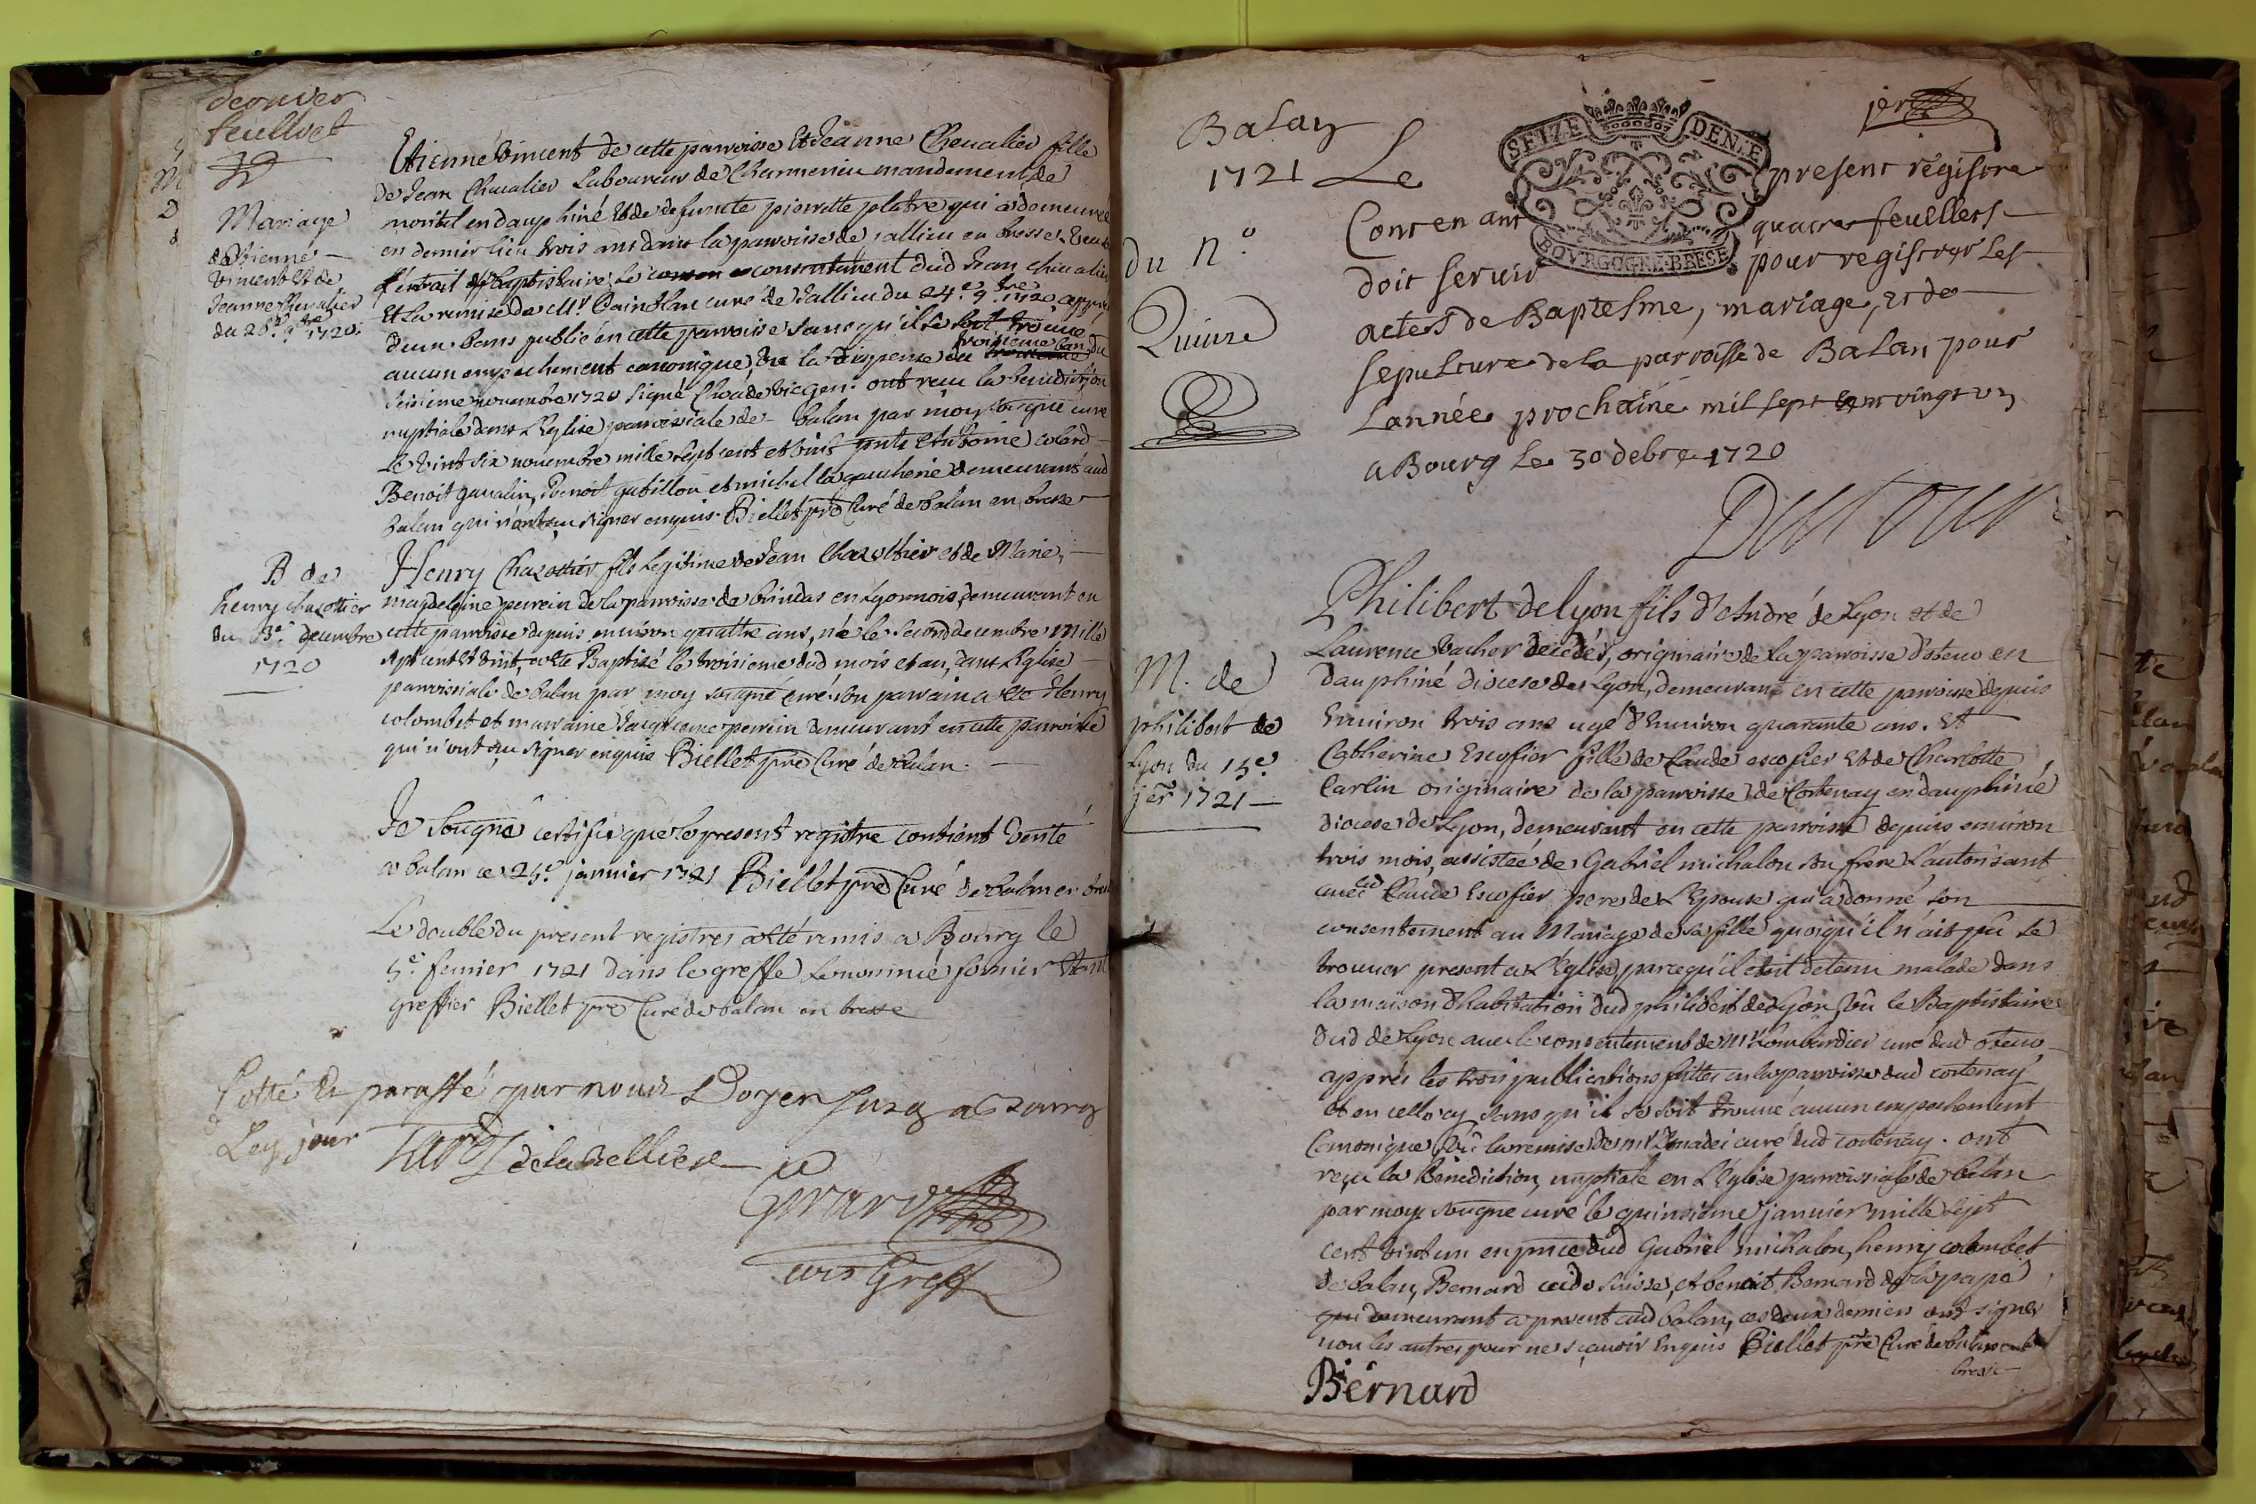 dernier
feuillet
Mariage
d'Etienne
Vincent et de
Jeanne Chevalier
du 26e 9bre 1720.
Etienne Vincent de cette parroisse et Jeanne Chevalier fille
de Jean Chevalier Laboureur de mandement de
en dauphiné et de defuncte pierrette platre qui a demeuré
en dernier lieu trois ans dans la parroisse de Jallieu en bresse. Veu
l'extrait Baptistaire, le consentiment dud Jean Chevalier
Et la remise de Mr curé de Jallieu du 24e 9bre 1720 apprés
d'un bans publié en cette parroisse sans qu'il se soit trouvé
aucun empechement canonique, Veu la dispense du troisieme ban du
novembre 1720 signé vic. gen. ont receu la benediction
nuptiale dans l'Eglise parroissiale de balan par moy sousigné curé
le vint six novembre mille sept cent et vint pnts Antoine colard
Benoit gavalin, Benoit gubillon et michel la demeurant aud
balan qui n'ont sçu signer enquis. Biellet pre Curé de balan en bresse
B de
henry chazottier
du 3e decembre
1720
Henry Chazottier fils legitime de Jean Chazottier et de Marie
magdeleine perrein de la parroisse de brindas en Lyonnois, demeurant en
cette parroisse depuis environ quattre ans, né le second decembre mille
sept cent et vint, a esté Baptisé le troisieme dud mois et an, dans l'Eglise
parroissiale de balan par moy sousigné curé son parrain a esté Henry
colombet et marraine perrein demeurant en cette parroisse
qui n'ont sçu signer enquis Biellet pre Curé de balan.
Je sousigné certifie que le present registre contient verité
a balan ce 25e janvier 1721 Biellet pre Curé de balan en bresse
Le double du present registre a esté remis a Bourg le
5e fevrier 1721 dans le greffe le nommé fornier Etant
greffier Biellet pre Curé de balan en bresse
Cotté et paraffé par nous Doyen a Bourg
Les jour
Girard
Greff
Balan
1721
du n.o
Quinze
jer
SEIZE DENIE
BOVRGOGNE BRESSE
Le present registre
Contenant quatre feuillets
doit servir pour registrer Les
actes de Baptesme, mariage, et de
sepulture de la parroisse de Balan pour
L'année prochaine mil sept cent vingt un
a Bourg Le 30 debre 1720
M. de
philibert de
Lyon du 15e
jer 1721
Philibert de Lyon fils d'André de Lyon et de
Laurence Vacher decedés, originaire de la parroisse d'osteno en
dauphiné diocese de Lyon, demeurant en cette parroisse depuis
Environ trois ans agé d'Environ quarante ans. Et
Catherine Escofier fille de Claude escofier Et de Charlotte
Carlin originaire de la parroisse de Cortenay en dauphiné
diocese de Lyon, demeurant en cette parroisse depuis environ
trois mois, assistée de Gabriel michalon son frere L'autorisant
avec led Claude Escofier pere de L'Epouse qui a donné son
consentement au Mariage de sa fille quoiqu'il n'ait pû se
trouver present a l'Eglise, parcequ'il etoit detenu malade dans
la maison d'habitation dud philibert de Lyon, Vû le Baptistaire
dud de Lyon avec le consentement de Mr Lombardier curé dud osteno
apprés les trois publications faittes en la parroisse dud cortenay
et en celle cy sans qu'il se soit trouvé aucun empechement
Canonique, Vû la remise de mr curé dud cortenay. ont
reçu la Benediction nuptiale en l'Eglise parroissiale de balan
par moy sousigné curé le quinzieme janvier mille sept
cent vint un en pnce dud Gabriel michalon, henry colombet
de balan, Bernard suisse, et benoit Bernard de la pape
qui demeurent a present aud balan, ces deux derniers ont signer
non les autres pour ne sçavoir Enquis Biellet pre Curé de balan en
bresse
Bernard